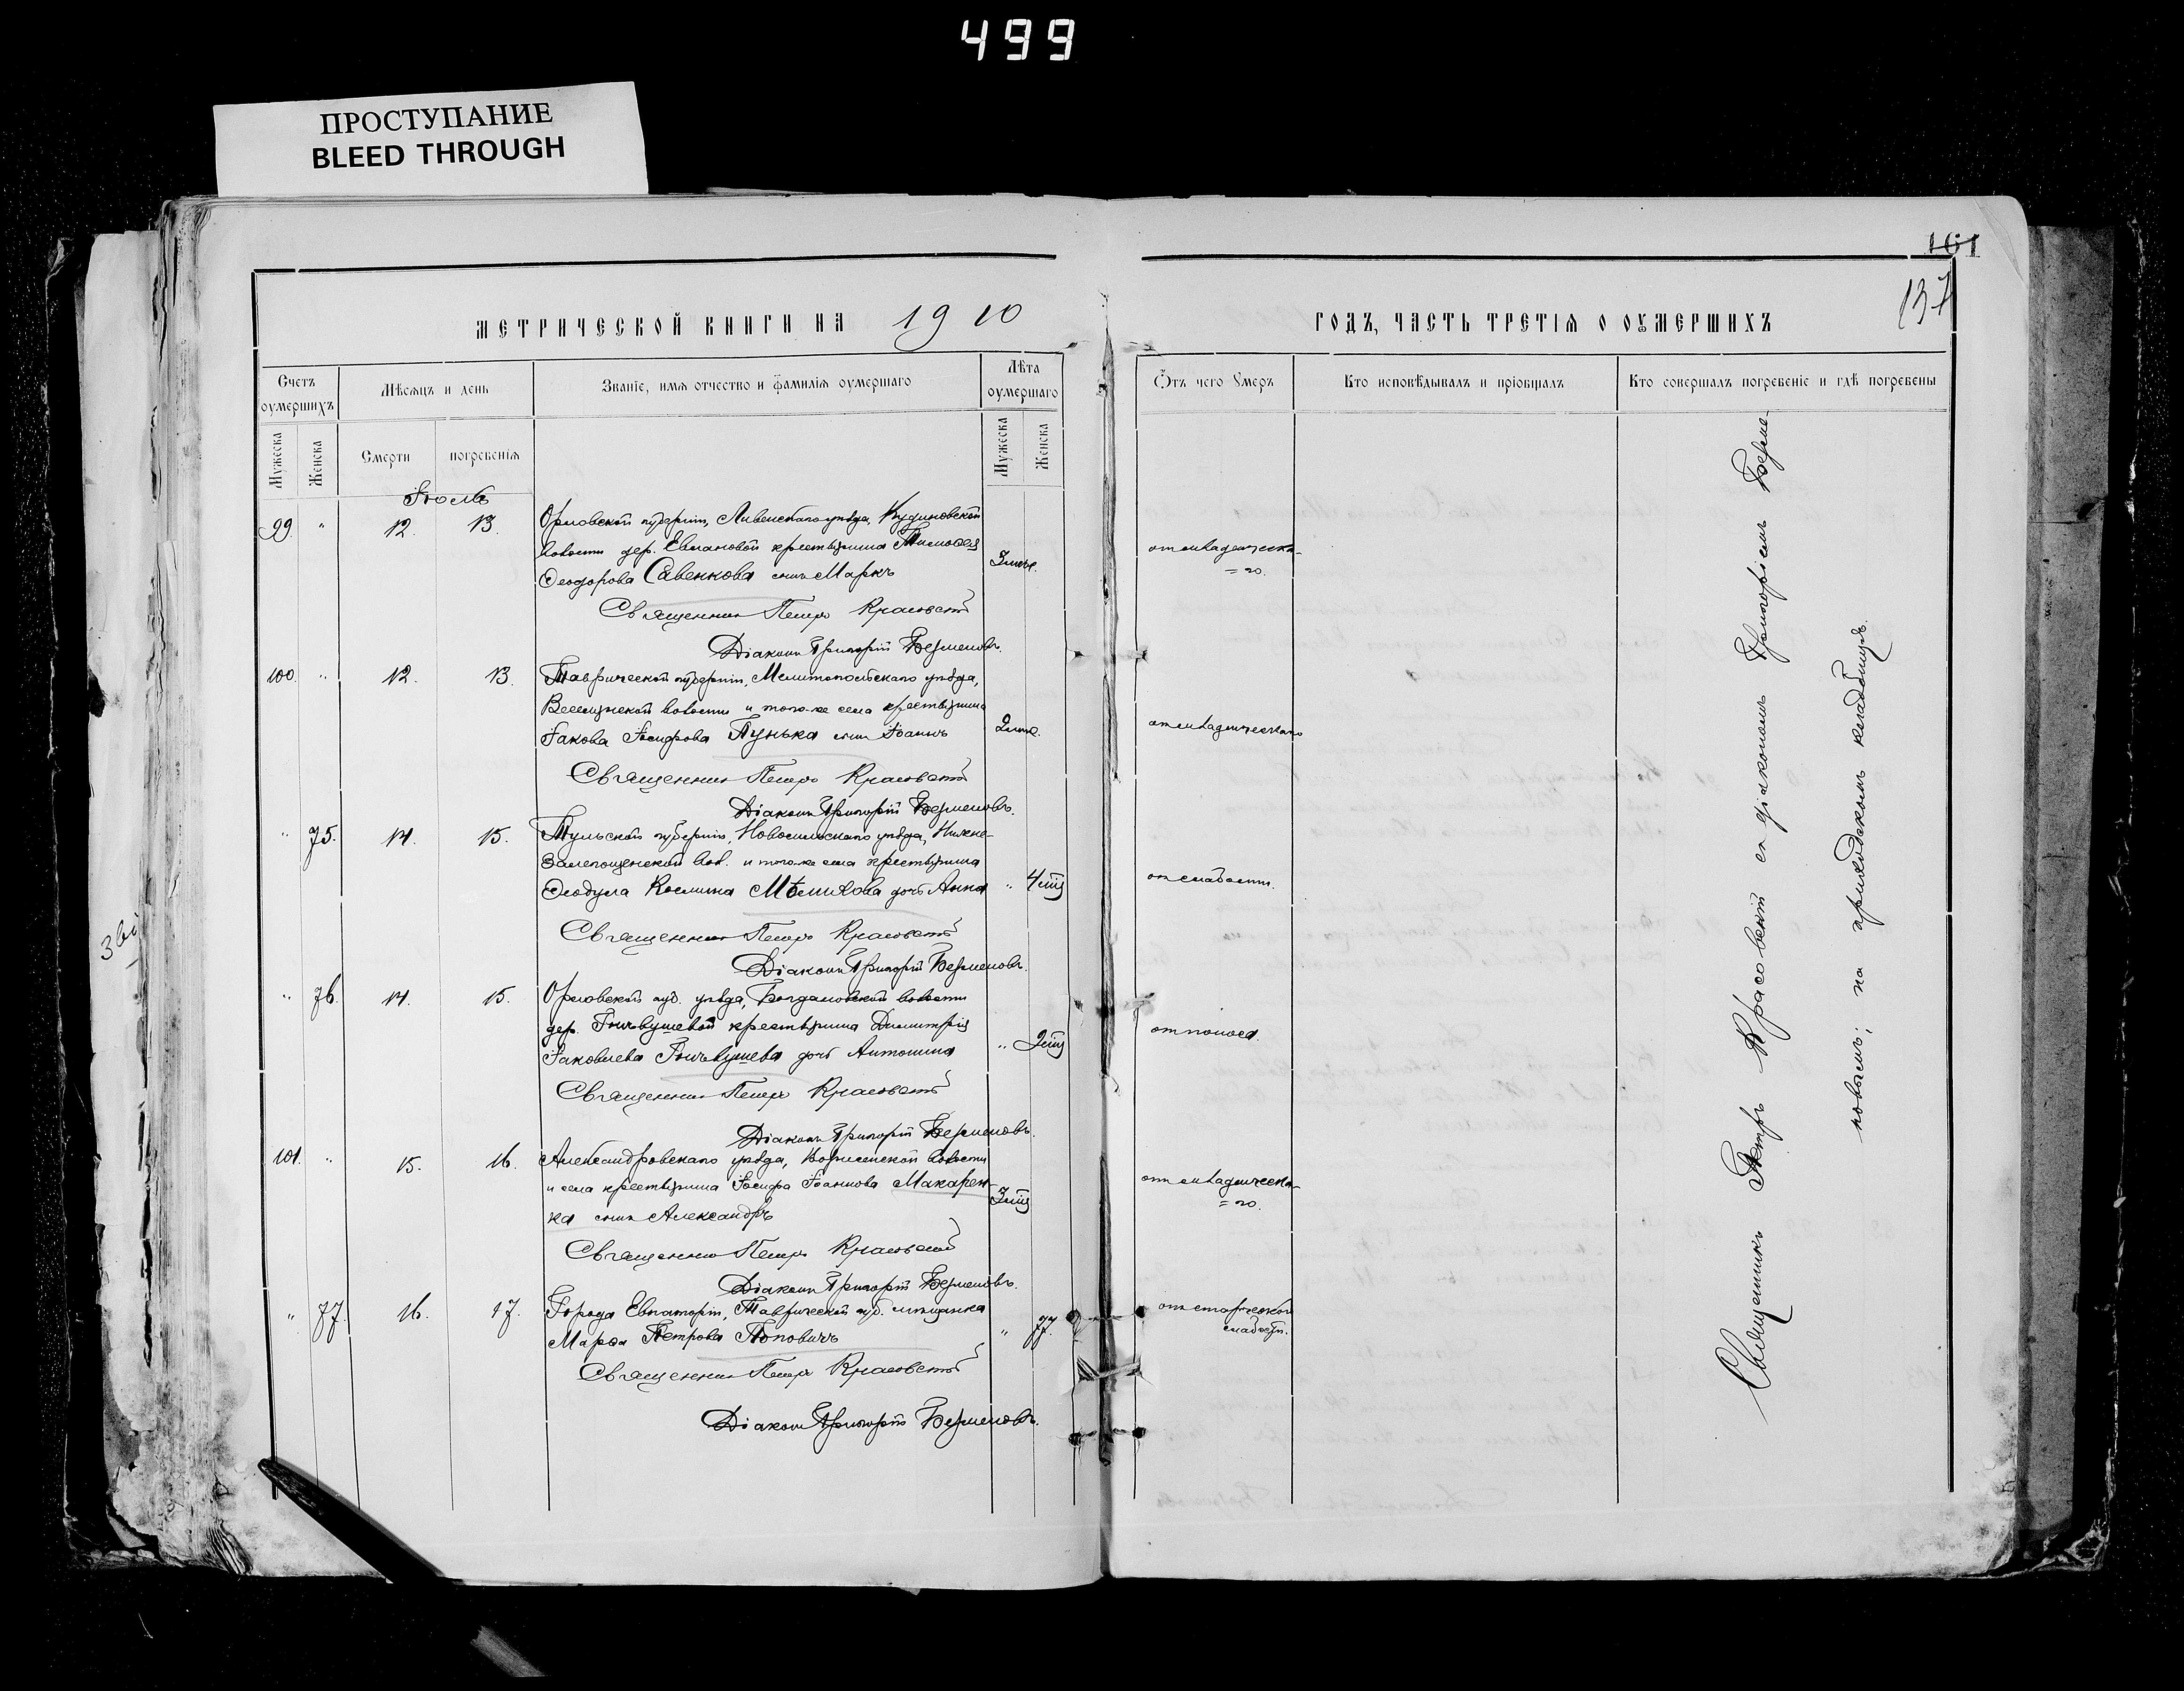 499
ПРОСТУПАНИЕ
BLEED THROUGH
161
137
МЕТРИЧЕСКОЙ КНИГИ НА 1910
ГОДЪ, ЧАСТЬ ТРЕТІЯ О ОУМЕРШИХЪ
Счетъ оумершихъ
Мѣсяцъ и день
Званіе, имя отчество и фамилія оумершаго
Лѣта оумершаго
Ѿтъ чего Умеръ
Кто исповѣдывалъ и пріобщалъ
Кто совершалъ погребеніе и гдѣ погребены
Мужеска
Женска
Смерти
погребенія
Мужеска
Женска
Іюль
99. " 12. 13. Орловской губерніи, Ливенскаго уѣзда, Кудиновской
волости дер. Евлановой крестьянина Тимофея
Ѳеодорова Савенкова сынъ Маркъ
3 мѣс.
отъ младенческа-
=го.
Священникъ Петръ Красовскій
Діаконъ Григорій Бермоновъ.
100. " 12. 13. Таврической губерніи, Мелитопольскаго уѣзда,
волости и того-же села крестьянина
Іакова Іосифова Пунька сынъ Іоаннъ
отъ младенческаго
Священникъ Петръ Красовскій
Діаконъ Григорій
" 75. 14. 15. Тульской губерніи, Новосильскаго уѣзда, Нижне-
Залегощенской вол. и того-же села крестьянина
Ѳеодула Космина дочь Анна " 4
отъ слабости.
Священникъ Петръ Красовскій
Діаконъ Григорій
" 76. 14. 15. Орловской губ. уѣзда, Богдановской волости
дер. крестьянина Димитрія
Іаковлева дочь Антонина " 2
отъ поноса.
Священникъ Петръ Красовскій
Діаконъ Григорій
101. " 15. 16. Александровскаго уѣзда, волости
и села крестьянина Іосифа Іоаннова Макарен-
ка сынъ Александръ
отъ младенческа-
=го.
Священникъ Петръ Красовскій
Діаконъ Григорій
" 77. 16. 17. Города Евпаторіи, Таврической губ. мѣщанка
Марѳа Петрова Поповичъ " 77.
отъ старческой
слабости.
Священникъ Петръ Красовскій
Діаконъ Григорій
Священникъ Петръ Красовскій съ діакономъ Григоріемъ
новымъ; на приходскомъ кладбищѣ.